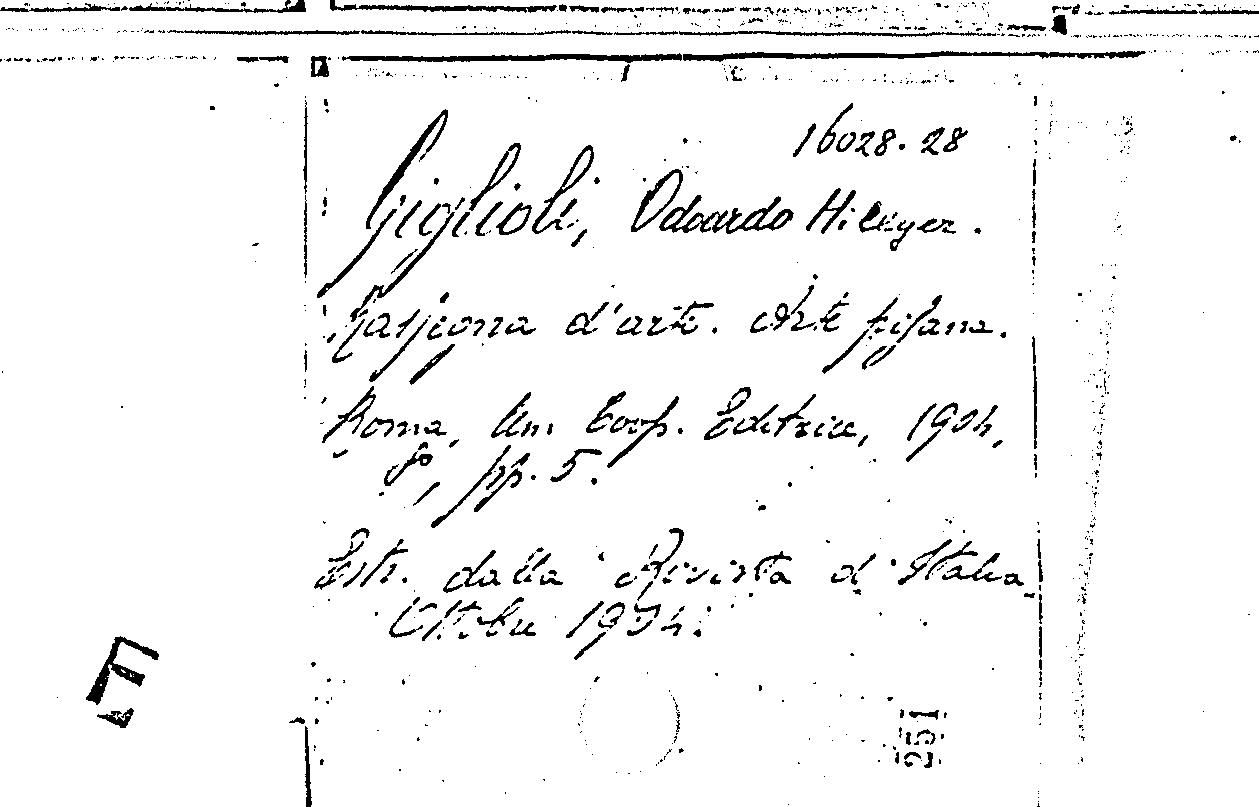 16028.28
Giglioli, Odoardo Hillyer.
Rassegna d'arte. Arte pisana.
Roma, Un. Coop. Editrice, 1904,
8°, pp. 5.
Estr. dalla Rivista d'Italia
Ottobre 1904.
251